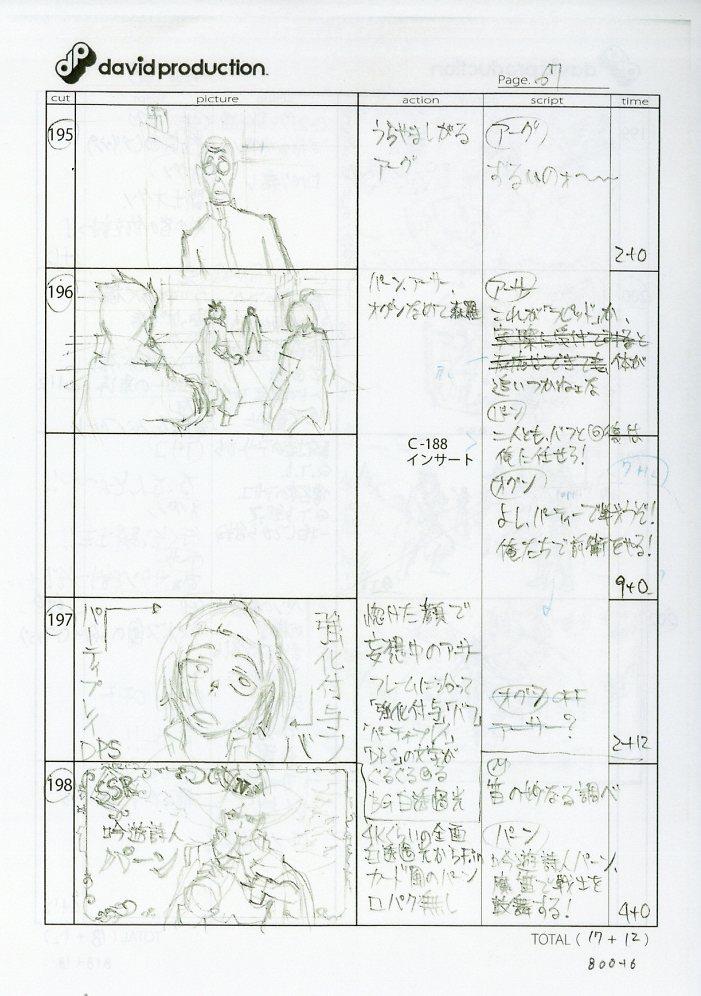 davidproduction.
Page.
cut
picture
action
script
time
195
うらやましがる
アーグ
アーグ
ずるいのォ〜〜
2+0
196
パーン、アーサー、
オグンなめて森羅
アーサー
これが「ラピッド」か、
体が
追いつかねェな
パーン
二人とも、バフと
俺に任せろ!
C-188
インサート
オグン
よし、パーティーで戦うぞ!
俺たちで前衛をやる!
9+0
197
パーティプレイ
DPS
強化付与
バフ
惚けた顔で
妄想中のアーサー
フレームに沿って
「強化付与」「バフ」
「パーティプレイ」
「DPS」の文字が
ぐるぐる回る
BG白透過光
オグン OFF
アーサー?
2+12
198
SSR
吟遊詩人
パーン
4Kぐらいの全画
白透過光からF.in
カード画のパーン
口パク無し
笛の妙なる調べ
パーン
吟遊詩人パーン、
戦士を
鼓舞する!
4+0
TOTAL ( 17 + 12 )
800+6